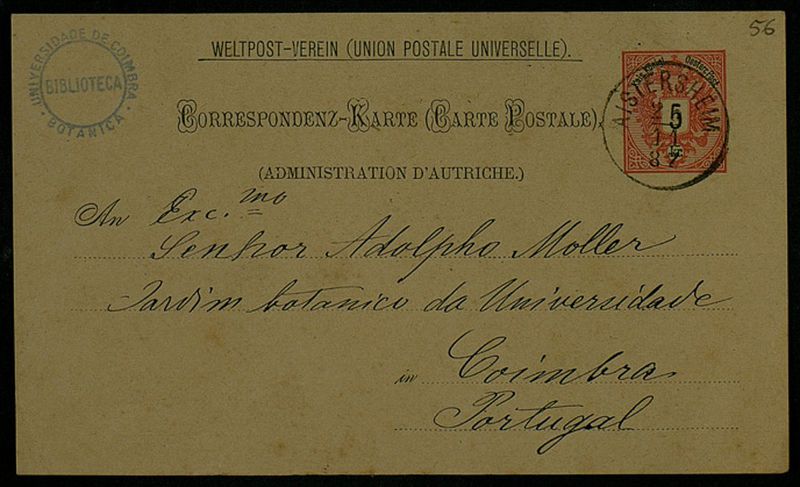 56
UNIVERSIDADE DE COIMBRA
BIBLIOTECA
BOTANICA
WELTPOST-VEREIN (UNION POSTALE UNIVERSELLE).
CORRESPONDENZ-KARTE (CARTE POSTALE).
(ADMINISTRATION D'AUTRICHE.)
5
AISTERSHEIM
11
87
An Exc.mo
Senhor Adolpho Moller
Jardim botanico da Universidade
in Coimbra
Portugal